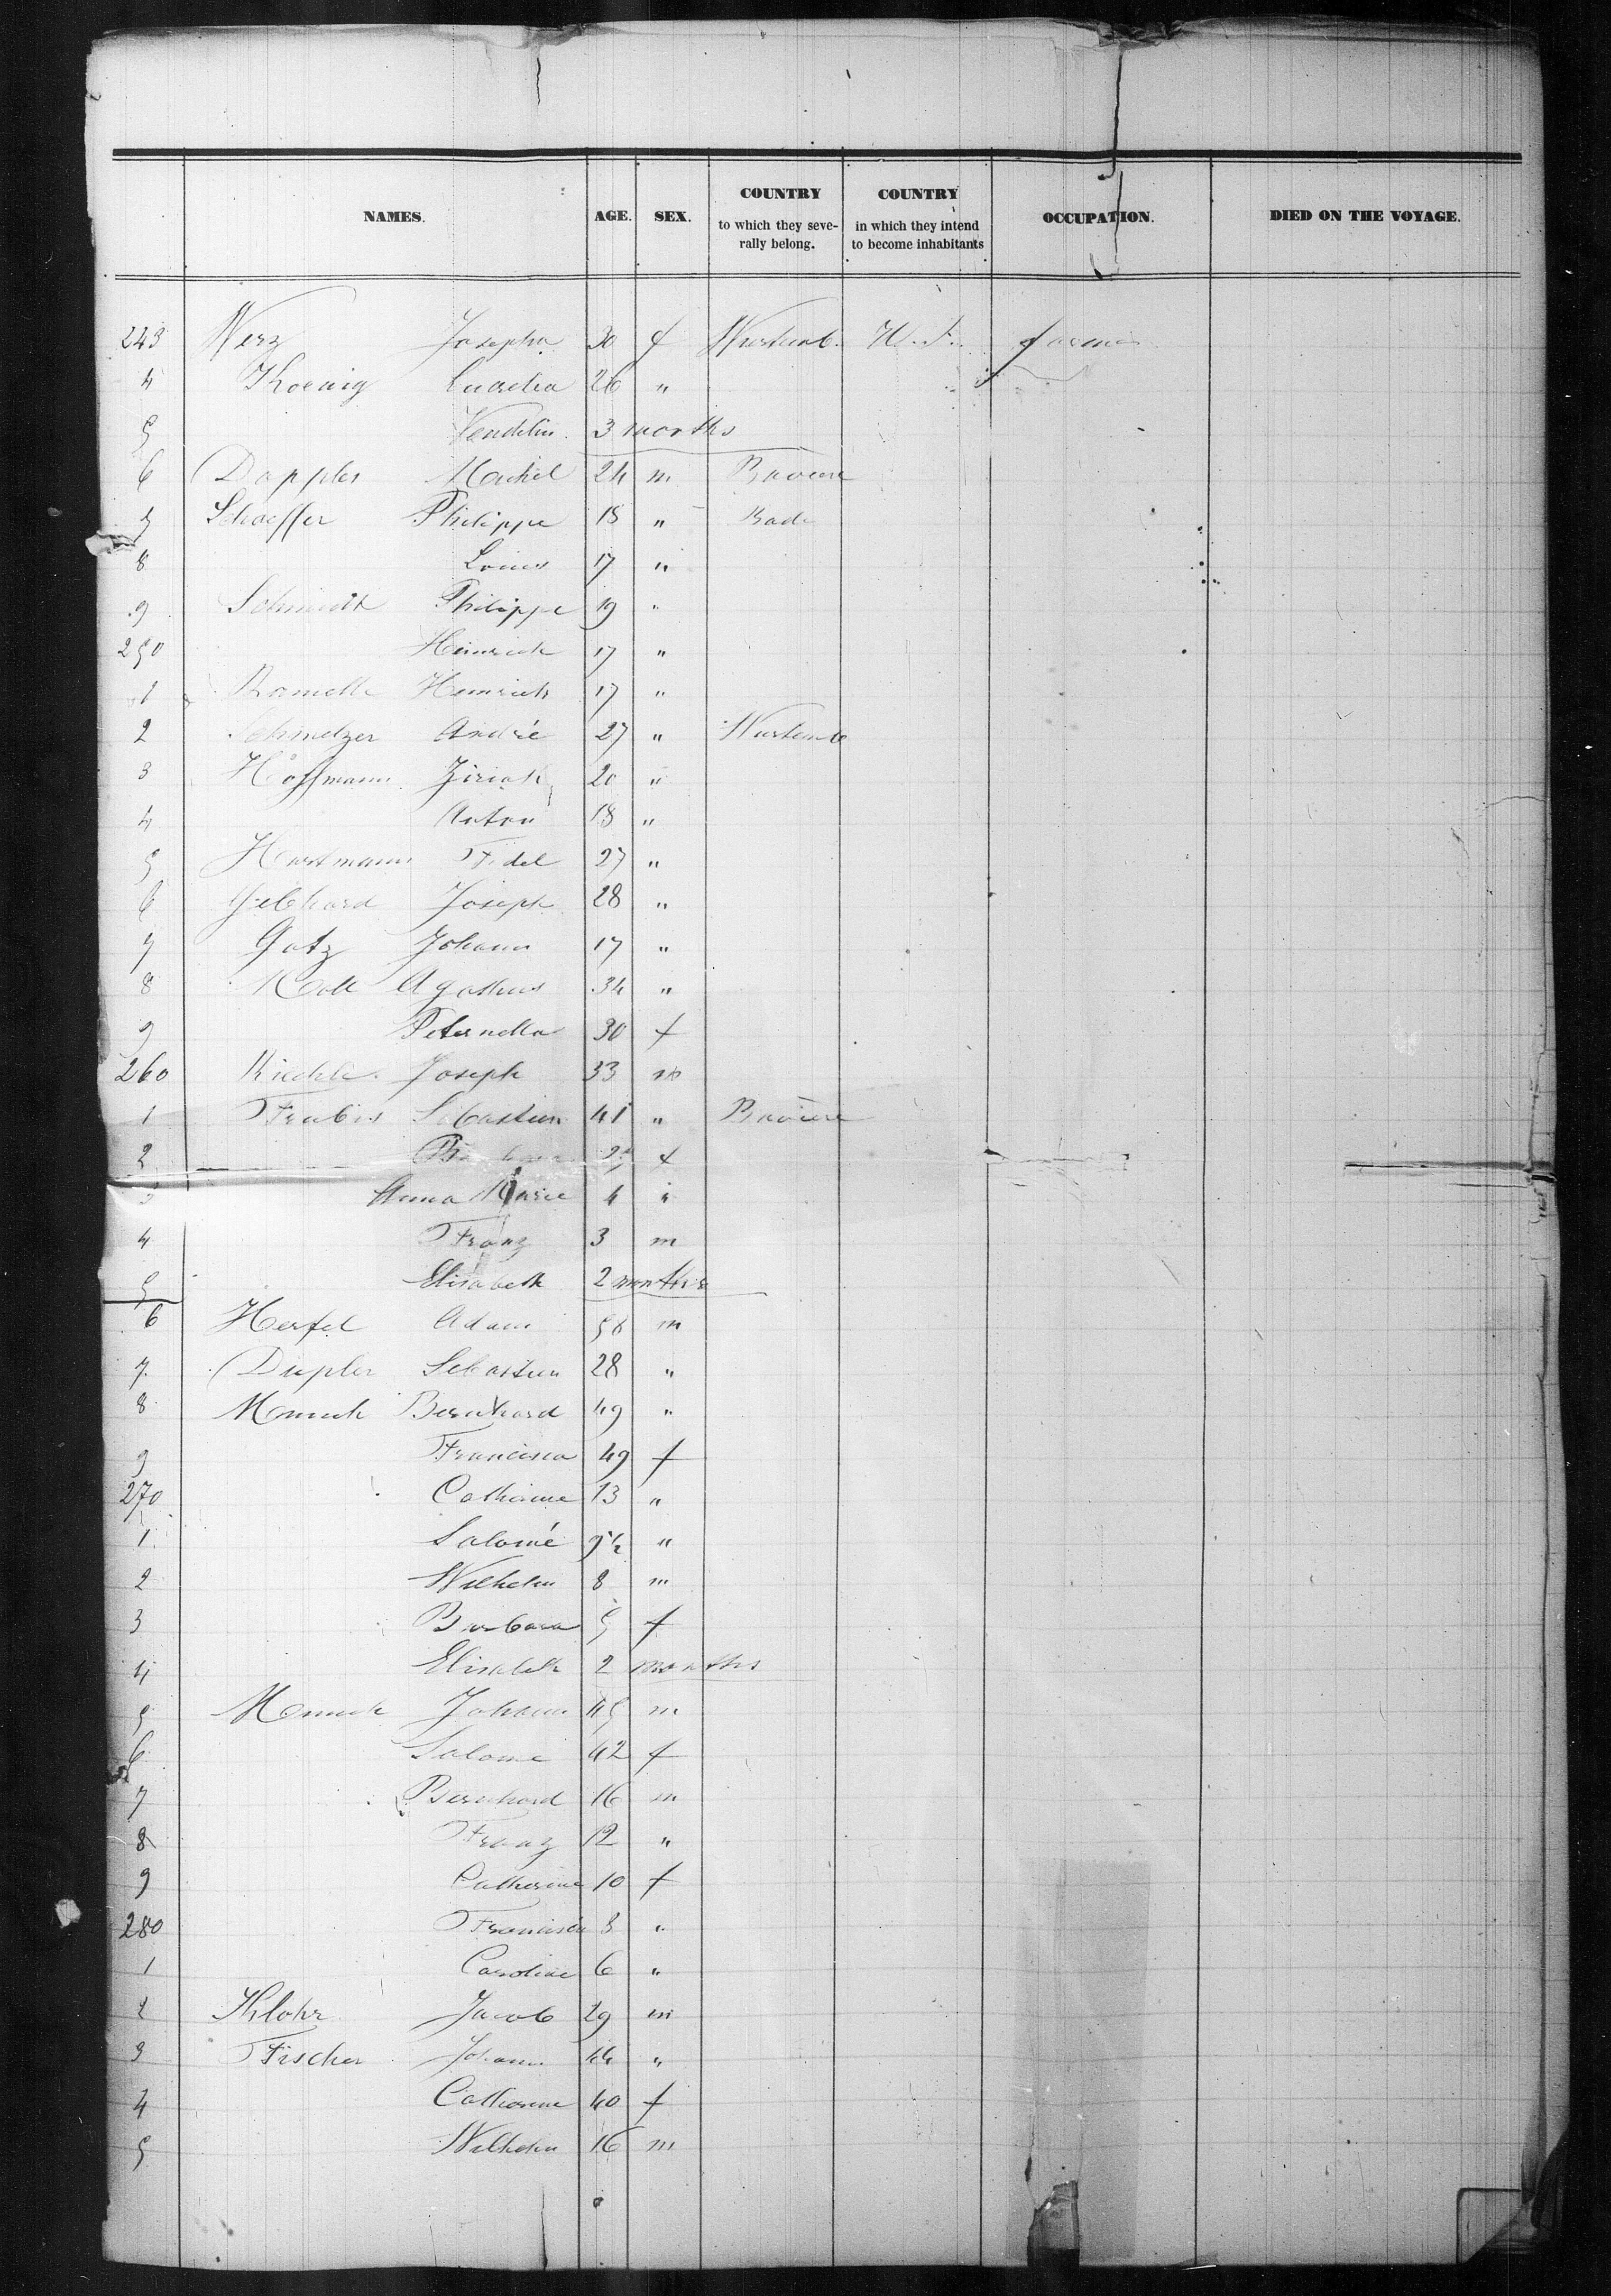 NAMES. AGE. SEX. COUNTRY to which they seve- rally belong. COUNTRY in which they intend to become inhabitants OCCUPATION. DIED ON THE VOYAGE.
243 Nerz Josepha 30 f Wurtemb. U. S. farmer
4 Koenig 26 "
5 Vendelin 3 months
6 Doppler Michel 24 m Baviere
7 Schaeffer Philippe 18 " Bade
8 Louis 17 "
9 Schmidt Philippe 19 "
250 Heinrich 17 "
1 Heinrich 17 "
2 Schmelzer André 27 " Wurtemb
3 Hoffmann Ziriak 20 "
4 Anton 18 "
5 Hartmann Fidel 27 "
6 Gebhard Joseph 28 "
7 Gotz Johann 17 "
8 34 "
9 Peternella 30 f
260 Kiechle Joseph 33 m
1 Sebastien 41 " Baviere
2 f
3 Anna Marie 4 "
4 Franz 3 m
5 Elisabeth 2 months
6 Herfel Adam 58 m
7 Dupler Sebastien 28 "
8 Munch Bernhard 49 "
9 Francisca 49 f
270 Catharine 13 "
1 Salomé 9 1/2 "
2 Wilhelm 8 m
3 Barbara 5 f
4 Elisabeth 2 months
5 Munch Johann 45 m
6 Salome 42 f
7 Bernhard 16 m
8 Franz 12 "
9 Catherine 10 f
280 Francisca 8 "
1 Caroline 6 "
2 Klohr Jacob 29 m
3 Fischer Johann 44 "
4 Catharine 40 f
5 Wilhelm 16 m